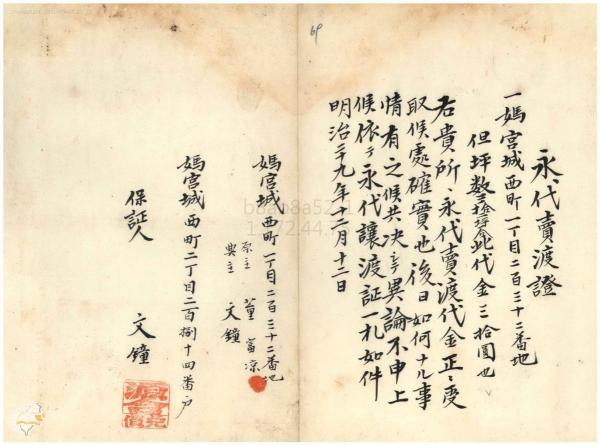 69
永代賣渡證
一媽宮城西町一丁目二百三十二番地
但坪数三拾坪此代金三拾圓也
右貴所ヘ永代賣渡代金正ニ受
取候處確實也後日如何ナル事
情有之候共决シテ異論不申上
候依テ永代讓渡証一札如件
明治二十九年十二月十二日
媽宮城西町一丁目二百三十二番地
原主 董富凉
典主 文鐘
媽宮城西町二丁目二百捌十四番戶
保証人 文鐘